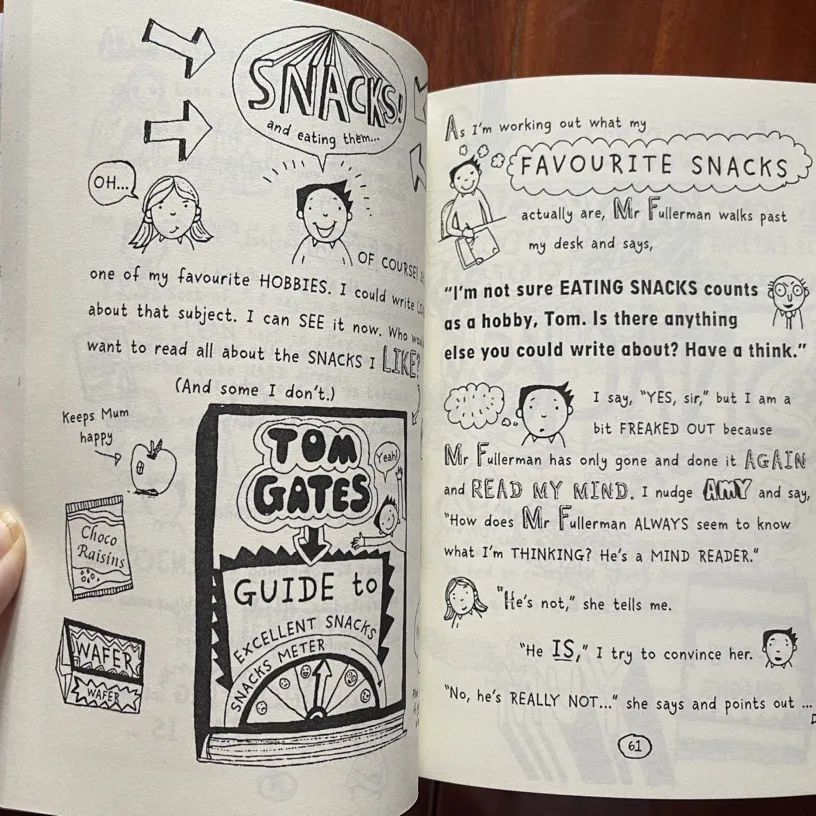 SNACKS!
and eating them...
OH...
OF COURSE!
one of my favourite HOBBIES. I could write
about that subject. I can SEE it now. Who
want to read all about the SNACKS I LIKE?
(And some I don't.)
Keeps Mum
happy
Choco
Raisins
WAFER
WAFER
TOM
GATES
Yeah!
GUIDE to
EXCELLENT SNACKS
SNACKS METER
As I'm working out what my
FAVOURITE SNACKS
actually are, Mr Fullerman walks past
my desk and says,
"I'm not sure EATING SNACKS counts
as a hobby, Tom. Is there anything
else you could write about? Have a think."
I say, "YES, sir," but I am a
bit FREAKED OUT because
Mr Fullerman has only gone and done it AGAIN
and READ MY MIND. I nudge AMY and say,
"How does Mr Fullerman ALWAYS seem to know
what I'm THINKING? He's a MIND READER."
"He's not," she tells me.
"He IS," I try to convince her.
"No, he's REALLY NOT..." she says and points out ...
61